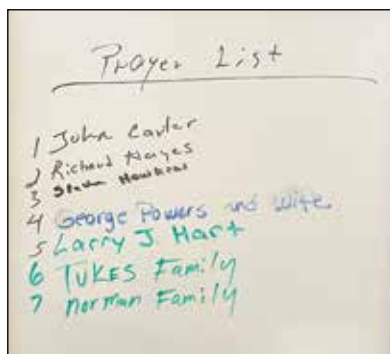 Prayer List
1 John Cavler
2 Richard Hayes
3 Steven Hawkins
4 George Powers and Wife
5 Larry J. Hart
6 TUKES Family
7 Norman Family